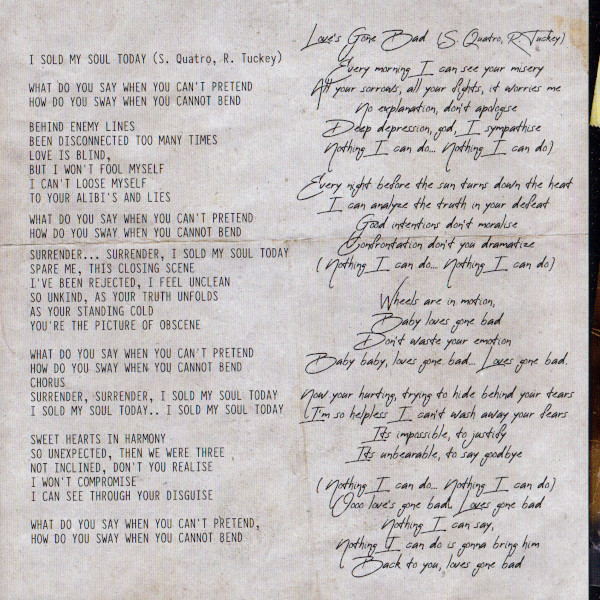 I SOLD MY SOUL TODAY (S. Quatro, R. Tuckey)
WHAT DO YOU SAY WHEN YOU CAN'T PRETEND
HOW DO YOU SWAY WHEN YOU CANNOT BEND
BEHIND ENEMY LINES
BEEN DISCONNECTED TOO MANY TIMES
LOVE IS BLIND,
BUT I WON'T FOOL MYSELF
I CAN'T LOOSE MYSELF
TO YOUR ALIBI'S AND LIES
WHAT DO YOU SAY WHEN YOU CAN'T PRETEND
HOW DO YOU SWAY WHEN YOU CANNOT BEND
SURRENDER... SURRENDER, I SOLD MY SOUL TODAY
SPARE ME, THIS CLOSING SCENE
I'VE BEEN REJECTED, I FEEL UNCLEAN
SO UNKIND, AS YOUR TRUTH UNFOLDS
AS YOUR STANDING COLD
YOU'RE THE PICTURE OF OBSCENE
WHAT DO YOU SAY WHEN YOU CAN'T PRETEND
HOW DO YOU SWAY WHEN YOU CANNOT BEND
CHORUS
SURRENDER, SURRENDER, I SOLD MY SOUL TODAY
I SOLD MY SOUL TODAY.. I SOLD MY SOUL TODAY
SWEET HEARTS IN HARMONY
SO UNEXPECTED, THEN WE WERE THREE
NOT INCLINED, DON'T YOU REALISE
I WON'T COMPROMISE
I CAN SEE THROUGH YOUR DISGUISE
WHAT DO YOU SAY WHEN YOU CAN'T PRETEND,
HOW DO YOU SWAY WHEN YOU CANNOT BEND
Love's Gone Bad (S. Quatro, R. Tuckey)
Every morning I can see your misery
All your sorrows, all your fights, it worries me
No explanation, don't apologise
Deep depression, god, I sympathise
Nothing I can do... Nothing I can do)
Every night before the sun turns down the heat
I can analyze the truth in your defeat
Good intentions don't moralise
Confrontation don't you dramatize
(Nothing I can do... Nothing I can do)
Wheels are in motion,
Baby loves gone bad
Don't waste your emotion
Baby baby, loves gone bad... Loves gone bad.
Now your hurting, trying to hide behind your tears
I'm so helpless I can't wash away your fears
Its impossible, to justify
Its unbearable, to say goodbye
(Nothing I can do... Nothing I can do)
Oooo love's gone bad.. Loves gone bad
Nothing I can say,
Nothing I can do is gonna bring him
Back to you, loves gone bad